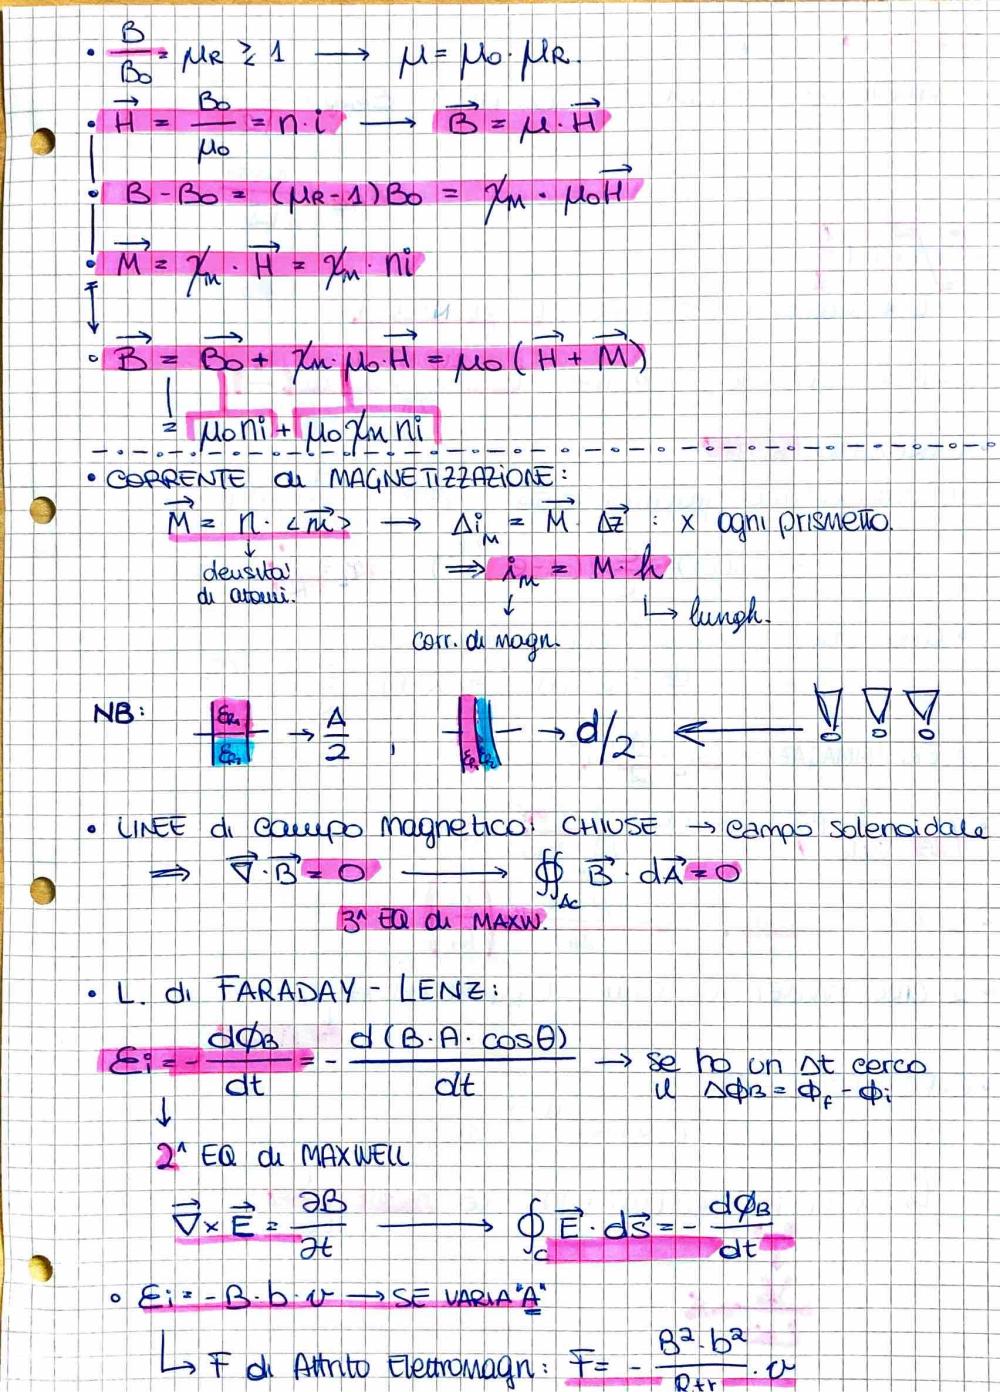 • B/B₀ = μR ≥ 1 → μ = μ₀ · μR.
• H⃗ = B₀/μ₀ = n·i → B⃗ = μ·H⃗
• B - B₀ = (μR - 1)B₀ = χm · μ₀H⃗
• M⃗ = χm · H⃗ = χm · ni
• B⃗ = B⃗₀ + χm·μ₀·H⃗ = μ₀(H⃗ + M⃗)
= μ₀ni + μ₀χm ni
• CORRENTE di MAGNETIZZAZIONE:
M⃗ = n · <m⃗> → Δi_M = M⃗ · Δz⃗ : x ogni prismetto.
densita' di atomi.
⇒ i_M = M·h
corr. di magn.
↳ lungh.
NB: εr₁ εr₂ → A/2 , εr₁ εr₂ → d/2 ← ! ! !
• LINEE di campo magnetico: CHIUSE → campo solenoidale
⇒ ∇⃗·B⃗ = 0 → ∯_Ac B⃗ · dA⃗ = 0
3^ EQ di MAXW.
• L. di FARADAY - LENZ:
εi = - dΦB/dt = - d(B·A·cosθ)/dt → se ho un Δt cerco
il ΔΦB = Φf - Φi
2^ EQ di MAXWELL
∇⃗ x E⃗ = ∂B/∂t → ∮_C E⃗ · ds⃗ = - dΦB/dt
• εi = -B·b·v → SE VARIA "A"
↳ F di Attrito Elettromagn: F = - B²·b²/R+r · v